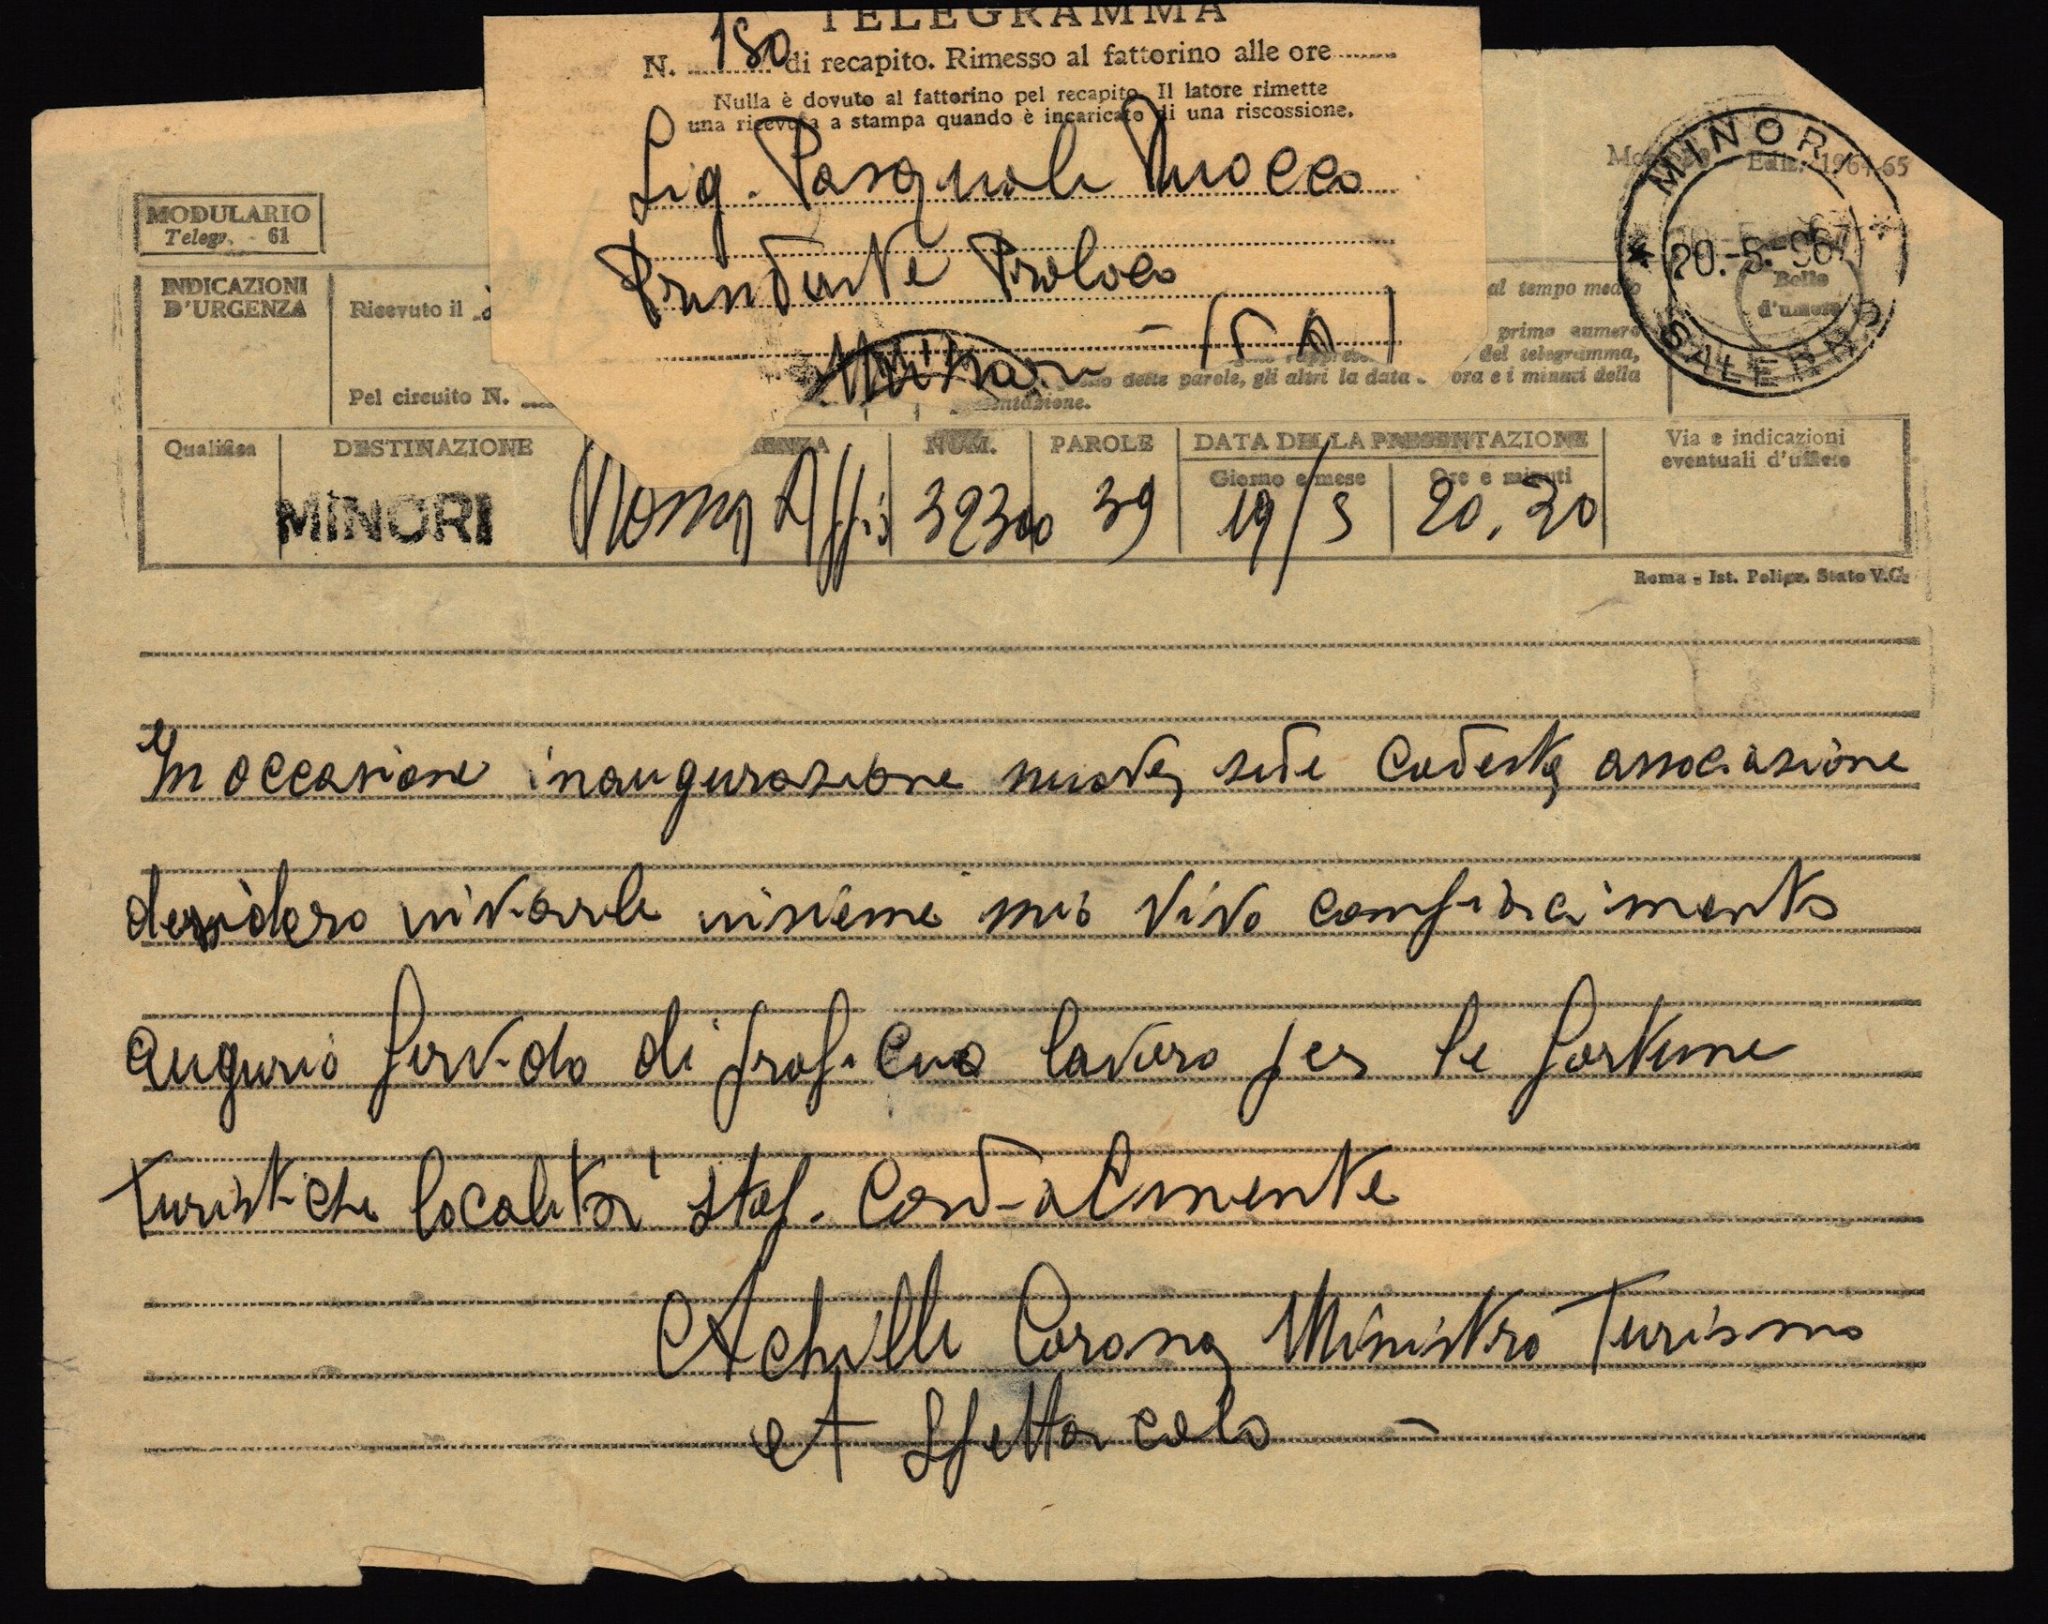 TELEGRAMMA
N. 180 di recapito. Rimesso al fattorino alle ore
Nulla è dovuto al fattorino pel recapito. Il latore rimette
una ricevuta a stampa quando è incaricato di una riscossione.
Sig. Pasquale Ruocco
Presidente Proloco
Minori - (SA)
MODULARIO
Telegr. - 61
Ediz. 1964-65
MINORI
20.-5.-967
SALERNO
Bollo
d'ufficio
INDICAZIONI
D'URGENZA
Ricevuto il
Pel circuito N.
al tempo medio
primo numero
del telegramma,
delle parole, gli altri la data ora e i minuti della
Qualifica
DESTINAZIONE
NUM.
PAROLE
DATA DELLA PRESENTAZIONE
Giorno e mese
Ore e minuti
Via e indicazioni
eventuali d'ufficio
MINORI
Roma 32300 39 19/5 20,30
Roma - Ist. Poligr. Stato V.C.
In occasione inaugurazione nuova sede codesta associazione
desidero inviarle insieme mio vivo compiacimento
augurio fervido di proficuo lavoro per le fortune
turistiche località stop. Cordialmente
Achille Corona Ministro Turismo
et Spettacolo -